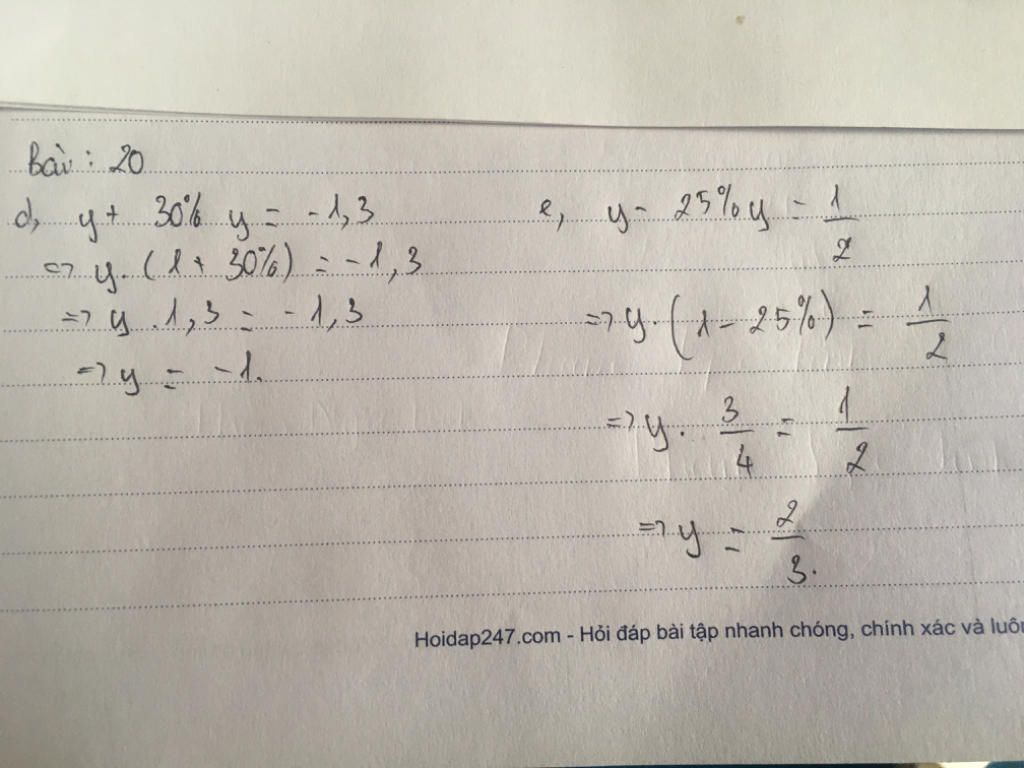 Bài : 20
d, y + 30% y = -1,3
=> y. (1 + 30%) = -1,3
=> y . 1,3 = -1,3
=> y = -1.
e, y - 25% y = 1/2
=> y. (1 - 25%) = 1/2
=> y. 3/4 = 1/2
=> y = 2/3.
Hoidap247.com - Hỏi đáp bài tập nhanh chóng, chính xác và luôn